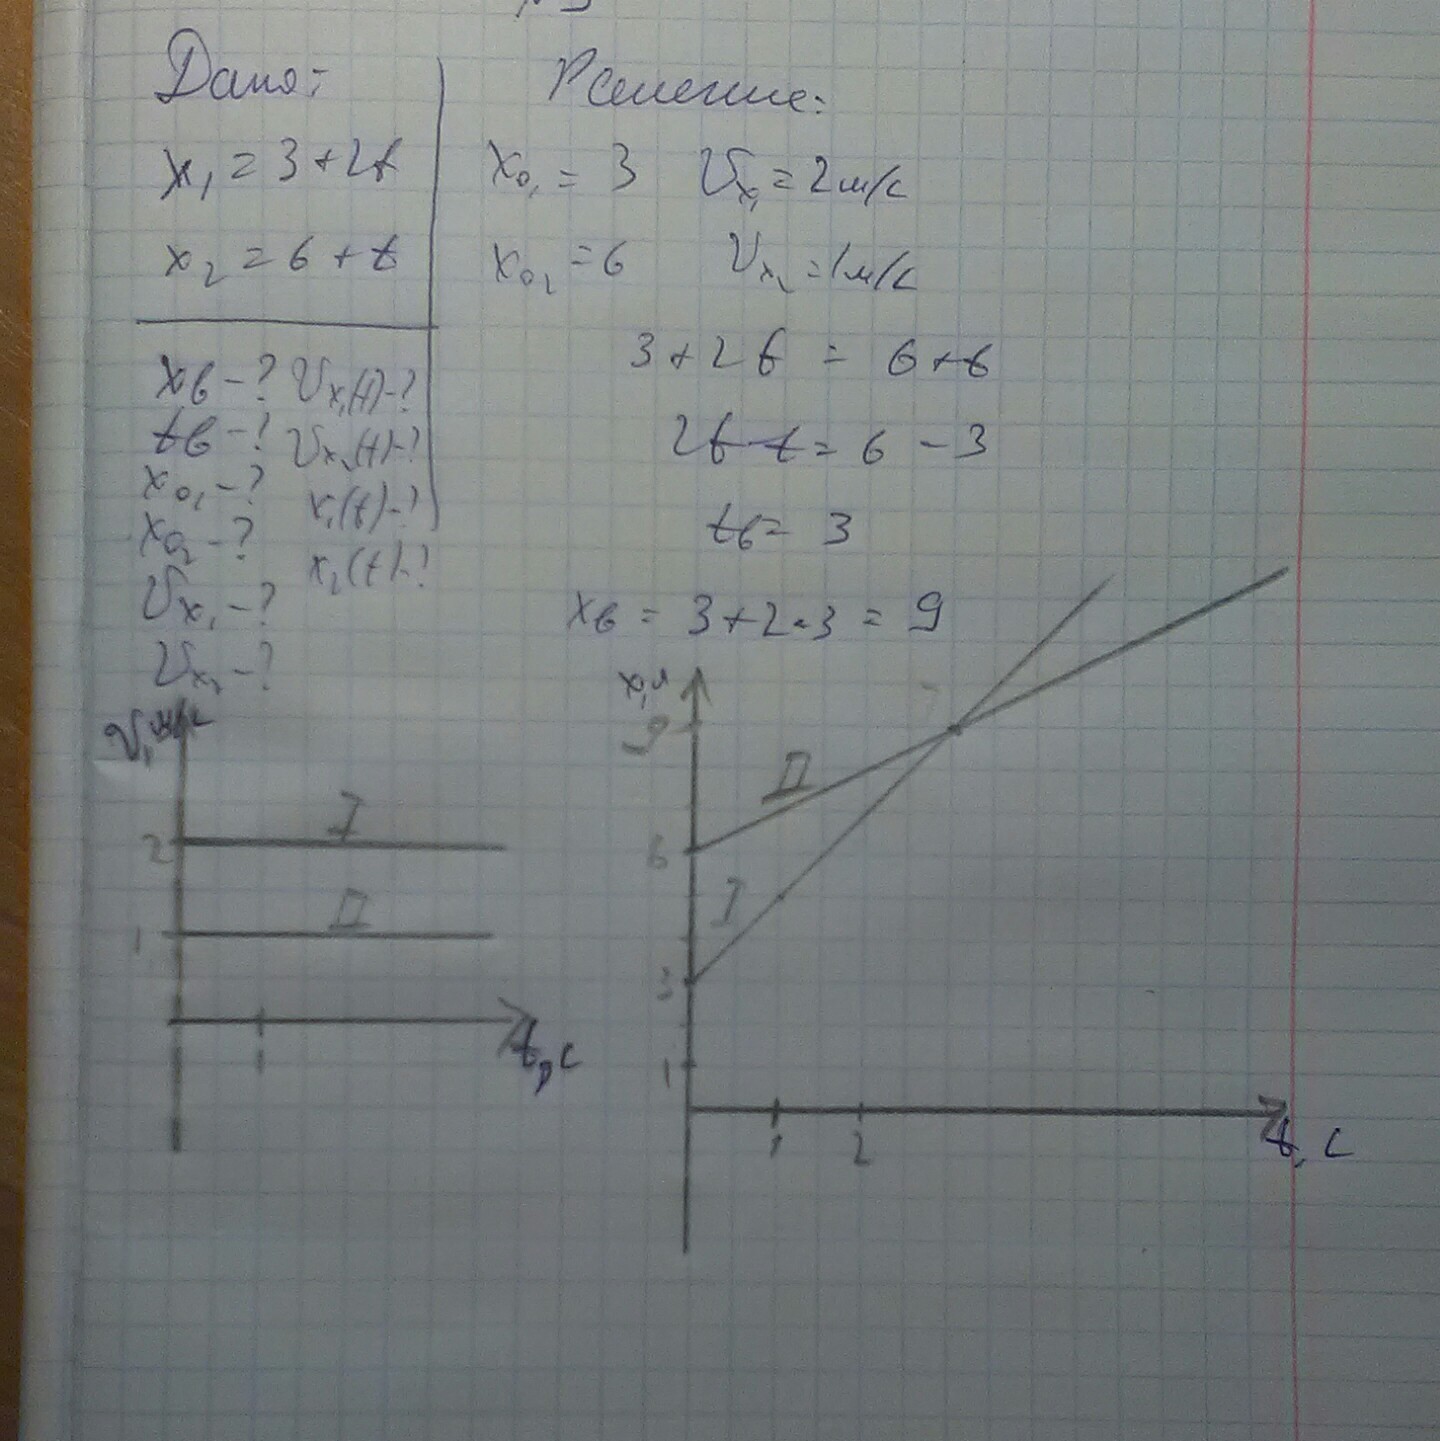 Дано:
x₁ = 3 + 2t
x₂ = 6 + t
xв - ? Vx₁(t) - ?
tв - ? Vx₂(t) - ?
x₀₁ - ? x₁(t) - ?
x₀₂ - ? x₂(t) - ?
Vx₁ - ?
Vx₂ - ?
Решение:
x₀₁ = 3 Vx₁ = 2 м/с
x₀₂ = 6 Vx₂ = 1 м/с
3 + 2t = 6 + t
2t - t = 6 - 3
tв = 3
xв = 3 + 2 · 3 = 9
V, м/с
2
I
1
II
1
t, с
x, м
9
II
6
I
3
1
1 2
t, с